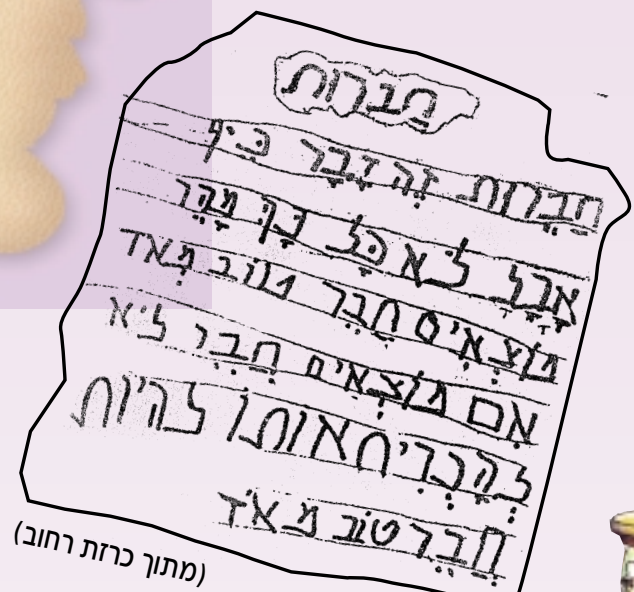 חברות
חברות זה דבר כיף
אבל לא כל כך מהר
מוצאים חבר טוב מאד
אם מוצאים חבר לא
להכריח אותו להיות
חבר טוב מאד
(מתוך כרזת רחוב)